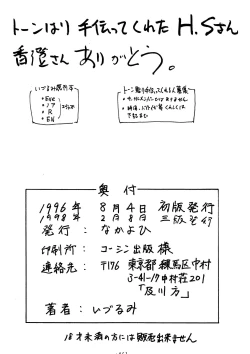 トーンはり 手伝ってくれた H.Sさん
香澄さん ありがとう。
いづるみ既刊本
・Eve
・ノア
・R
・EN
奥 付
1996年 8月4日 初版発行
1998年 2月8日 三版
発行：なかよひ
印刷所：コーシン出版 様
連絡先：〒176 東京都練馬区中村
3-41-17 中村荘201
「及川方」
著者：いづるみ
18才未満の方には販売出来ません